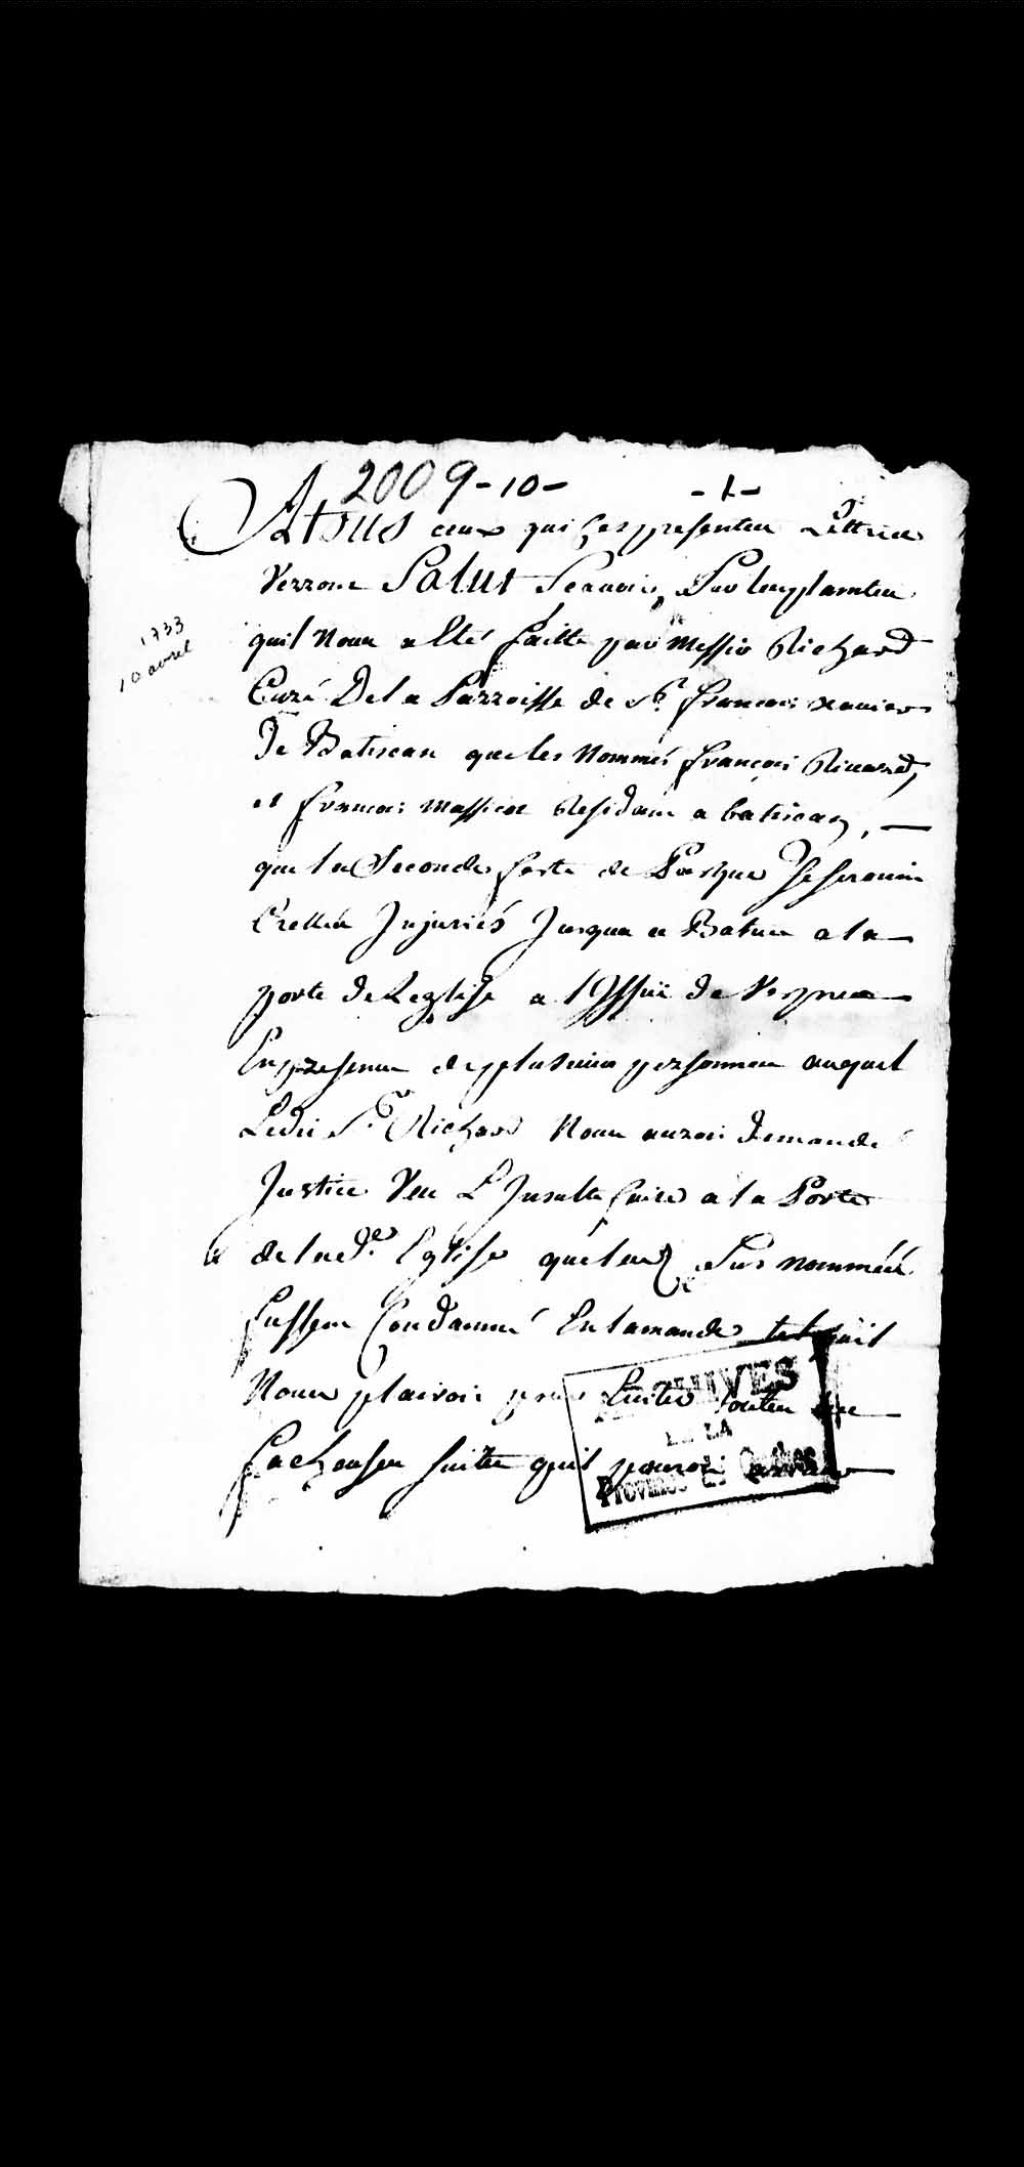 2009-10- -1-
A tous ceux qui ces presentes Lettres
Verrons Salut scavoir, Sur les plaintes
quil nous a Eté faitte par Messire Richard
Curé De la Parroisse de St. francois xavier
De Batiscan que les nommés françois Rivard,
1733
10 avril
et francois massicot Residant a batiscan, —
que la Seconde feste de Pasque Se seroient
Injuriés Jusqua se Batre a la
porte de Leglise a l'Issuë de Vespres
En presence de plusieurs personnes auquel
Ledit Sr. Richard nous auroit demandé
Justice Veu L'Insulte faite a la Porte
de lad.e Eglise que les Sus nommés
fussent Condamné En lamande tel quil
Nous plairoit pour Eviter toutes les
facheuses suites quil pouroit arriver
ARCHIVES
DE LA
Province de Québec